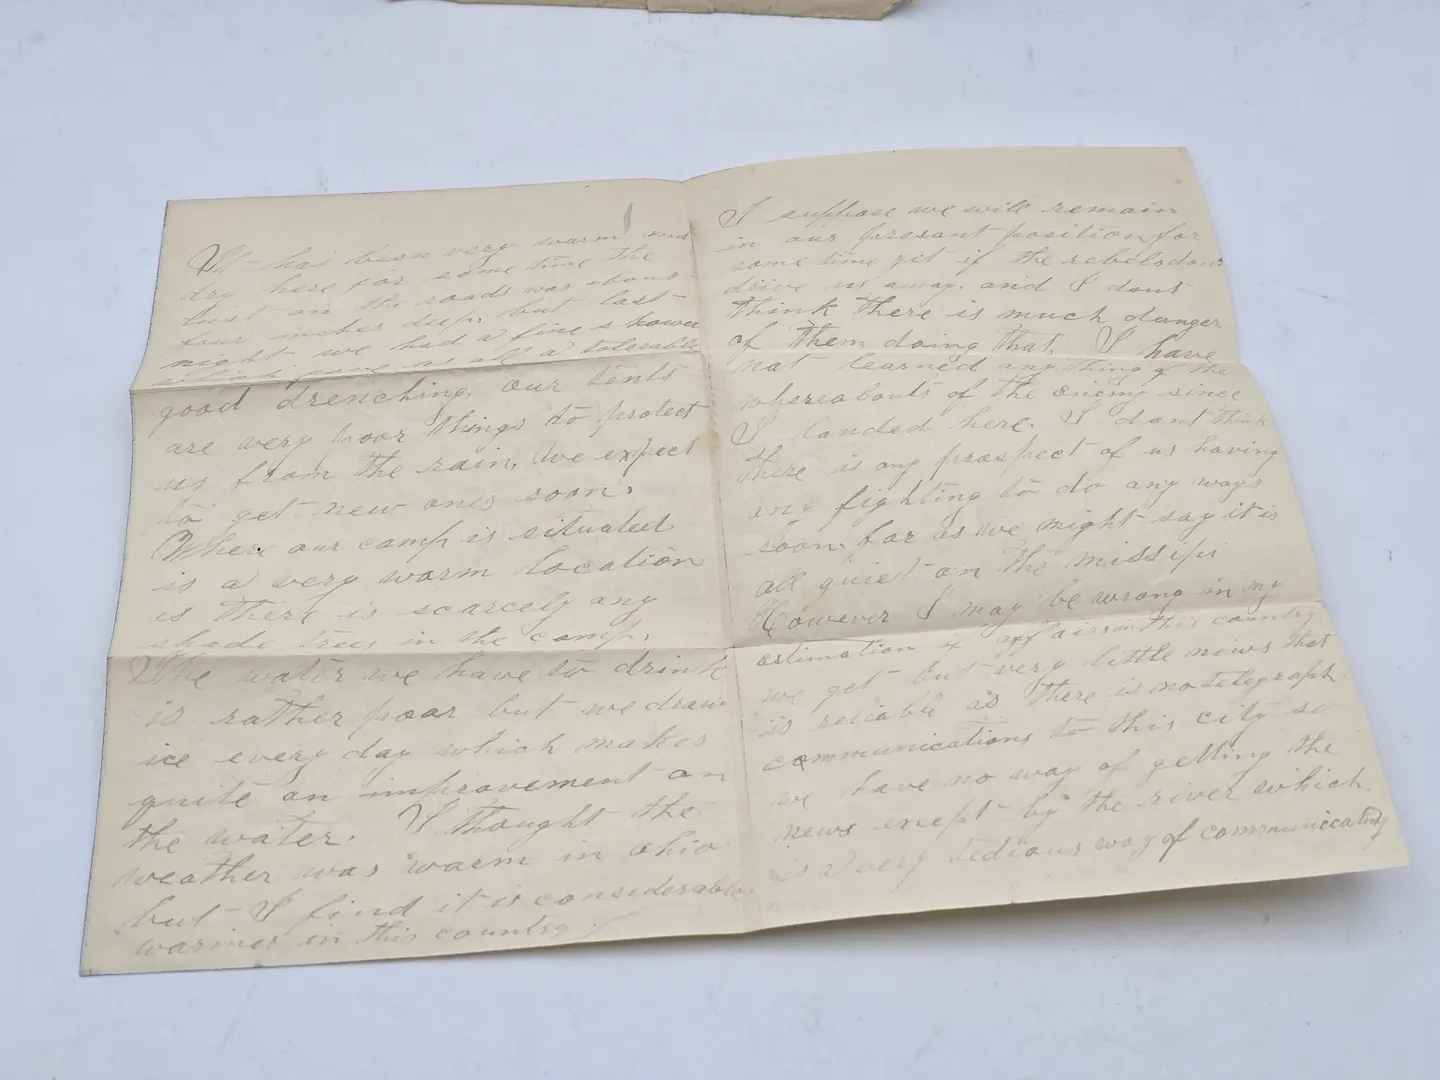 It has been very warm and
dry here for some time the
dust on the roads was about
four inches deep, but last
night we had a fine shower
which gave us all a tolerable
good drenching, our tents
are very poor things to protect
us from the rain, We expect
to get new ones soon,
Where our camp is situated
is a very warm location
is there is scarcely any
shade trees in the camp,
The water we have to drink
is rather poor but we draw
ice every day which makes
quite an improvement on
the water. I thought the
weather was warm in ohio
but I find it is considerable
warmer in this country
I suppose we will remain
in our presant position for
some time yet if the rebels dont
drive us away, and I dont
think there is much danger
of them doing that. I have
not learned any thing of the
whereabouts of the enemy since
I landed here. I dont think
there is any prospect of us having
any fighting to do any ways
soon. for as we might say it is
all quiet on the missipi
However I may be wrong in my
estimation affairs in this country
we get but very little news that
is reliable as there is no telegraph
communications to this city so
we have no way of getting the
news except by the river which.
is a very tedious way of communicating